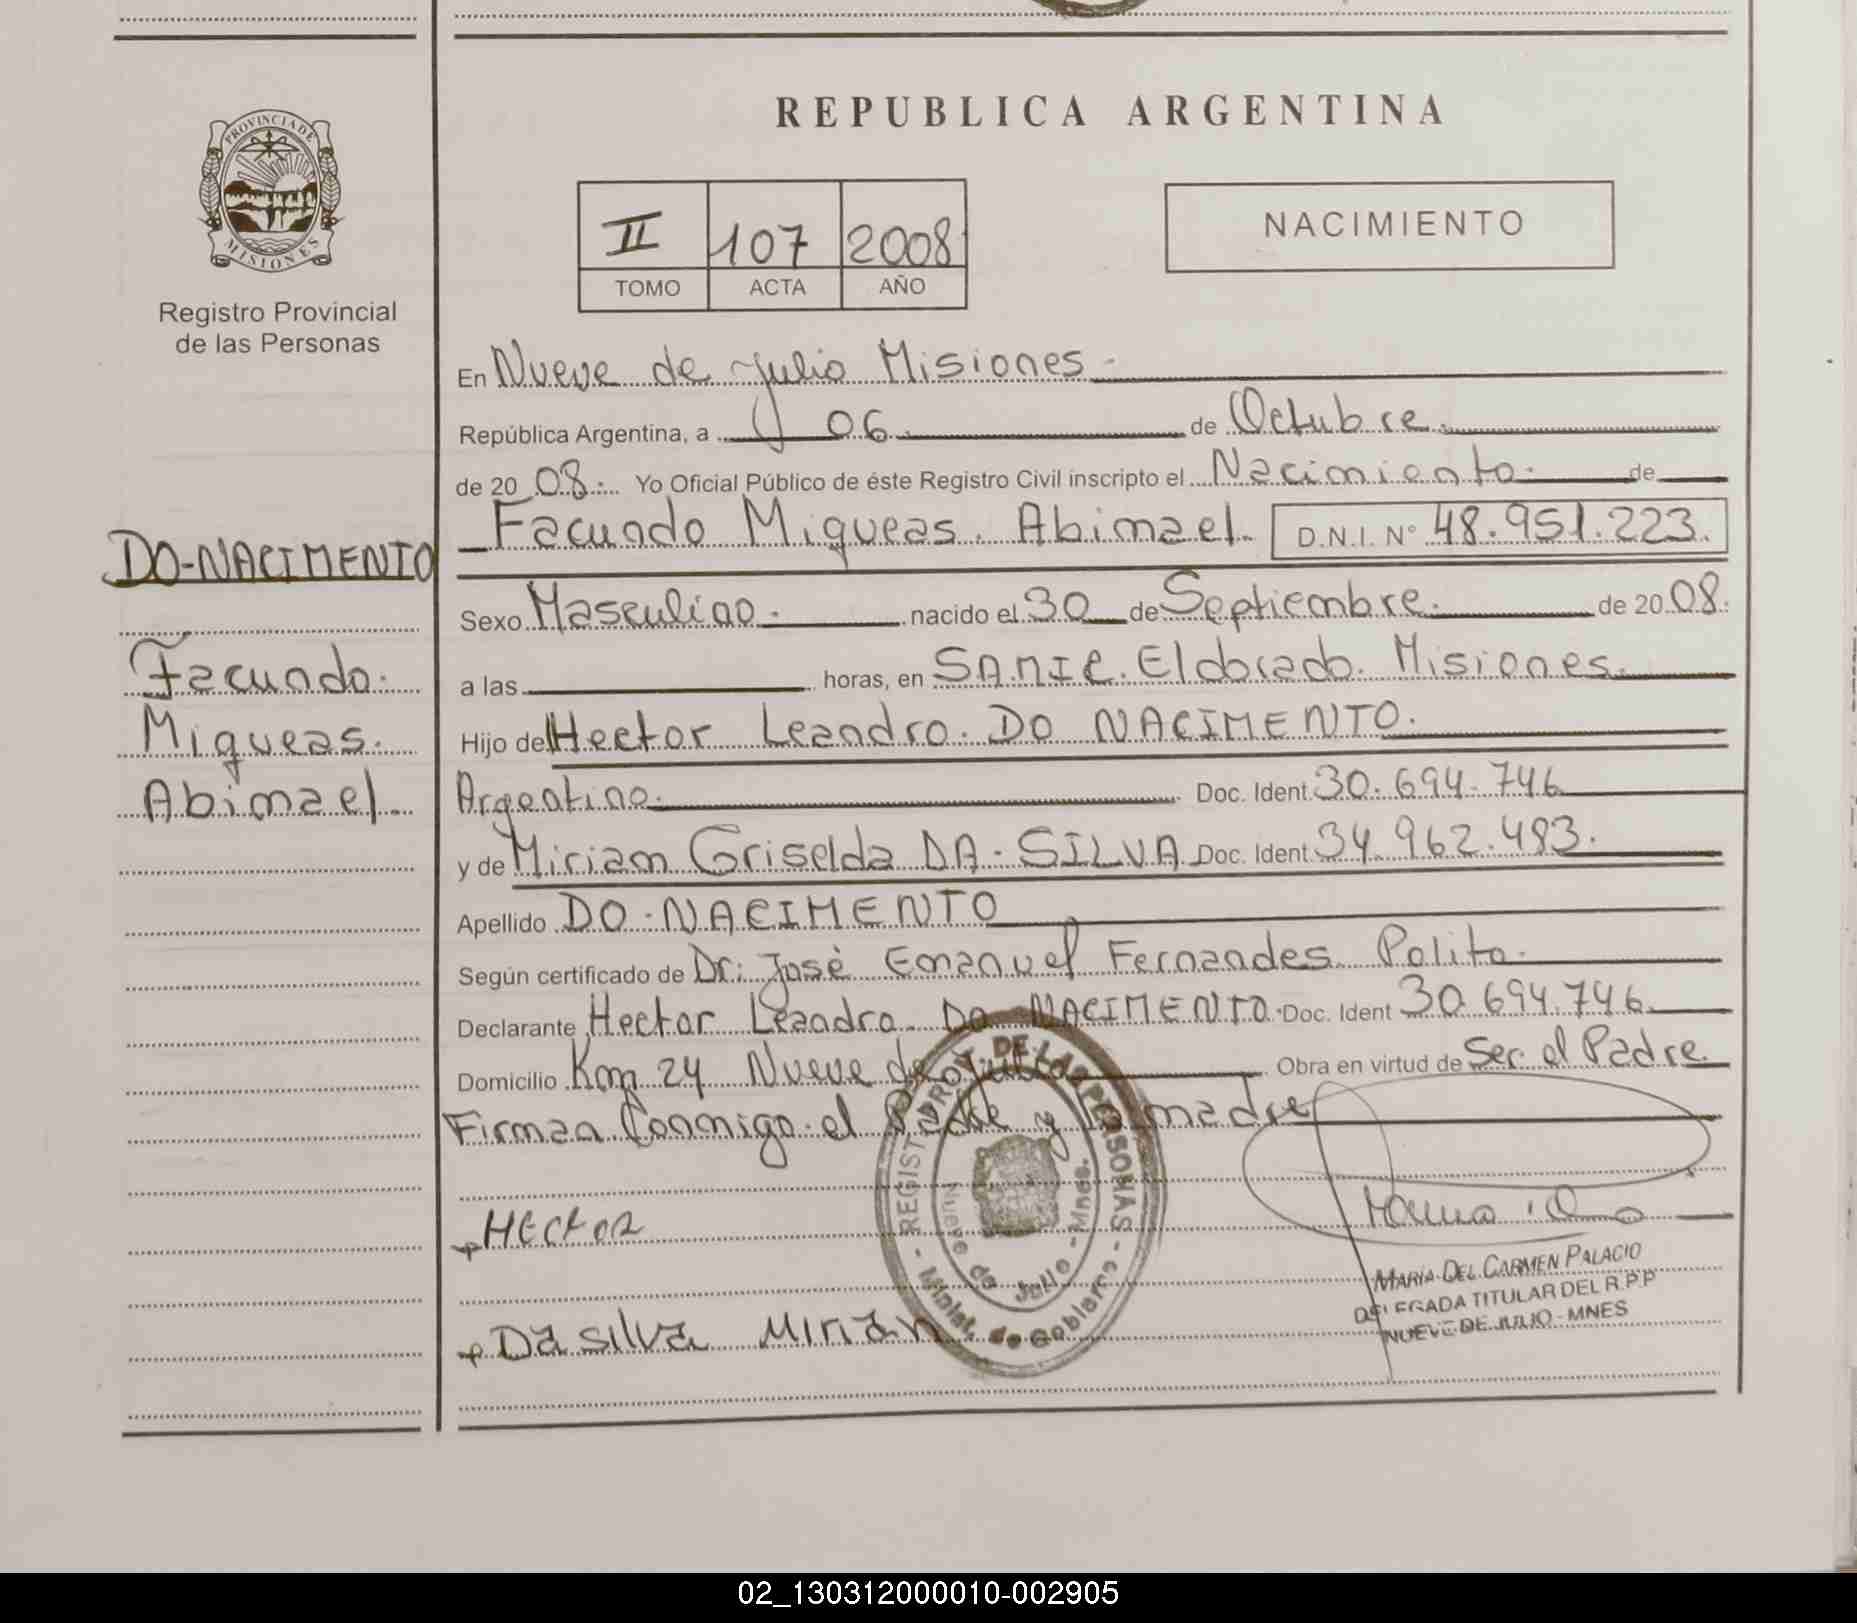 REPUBLICA ARGENTINA
PROVINCIA DE MISIONES
Registro Provincial
de las Personas
II 107 2008
TOMO ACTA AÑO
NACIMIENTO
En Nueve de Julio Misiones.
República Argentina, a 06. de Octubre.
de 20 08. Yo Oficial Público de éste Registro Civil inscripto el Nacimiento. de
Facundo Miqueas. Abimael. D.N.I. N° 48.951.223.
DO-NACIMENTO
Facundo.
Miqueas.
Abimael.
Sexo Masculino. nacido el 30 de Septiembre. de 20 08.
a las horas, en SAMIC. Eldorado. Misiones.
Hijo de Hector Leandro. DO NACIMENTO.
Argentino. Doc. Ident. 30.694.746
y de Miriam Griselda DA-SILVA. Doc. Ident. 34.962.483.
Apellido DO-NACIMENTO
Según certificado de Dr: José Emanuel Fernandes Polito.
Declarante Hector Leandro. DO NACIMENTO. Doc. Ident 30.694.746.
Domicilio Km 24 Nueve de Julio. Obra en virtud de Ser el Padre.
Firman Conmigo el Padre y la madre
Hector
Da silva Mirian
REGIST. PROV. DE LAS PERSONAS - Minist. de Gobierno -
Nueve de Julio - Mnes.
MARIA DEL CARMEN PALACIO
DELEGADA TITULAR DEL R.P.P
NUEVE DE JULIO - MNES
02_130312000010-002905